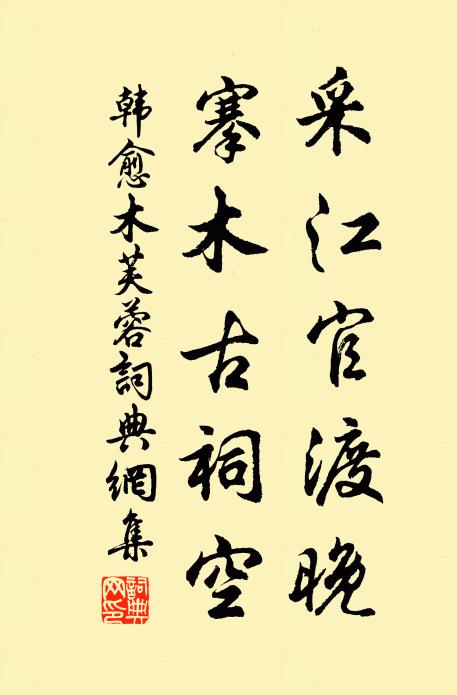 采江官渡晚
搴木古祠空
韩愈木芙蓉詞典網集
詞典網印